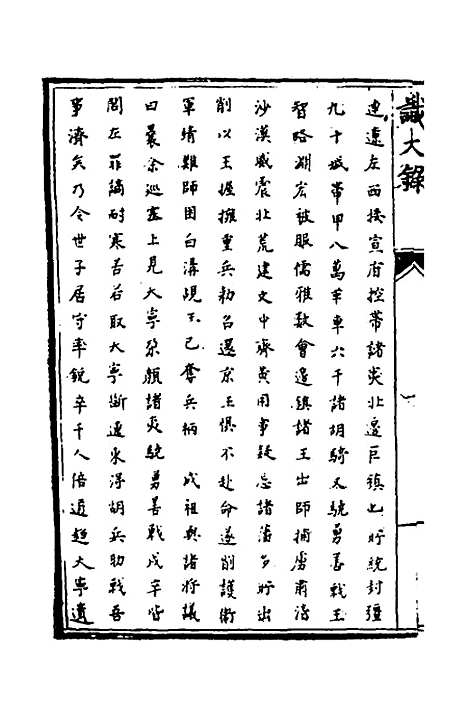 識大錄
連遼左西接宣府控帶諸夷北邊巨鎮也所統封疆
九十城帶甲八萬革車六千諸胡騎尤驍勇善戰王
智略淵宏被服儒雅數會邊鎮諸王出師捕虜肅清
沙漠威震北荒建文中齊黃用事疑忌諸藩多所出
削以王握擁重兵勑召還京王惧不赴命遂削護衛
軍靖難師困白溝覘王已奪兵柄 成祖與諸將議
曰曩余巡塞上見大寧朵顏諸夷驍勇善戰戍卒皆
閭左罪謫耐寒苦若取大寧斷遼東得胡兵助戰吾
事濟矣乃令世子居守率銳卒千人倍道趨大寧遺